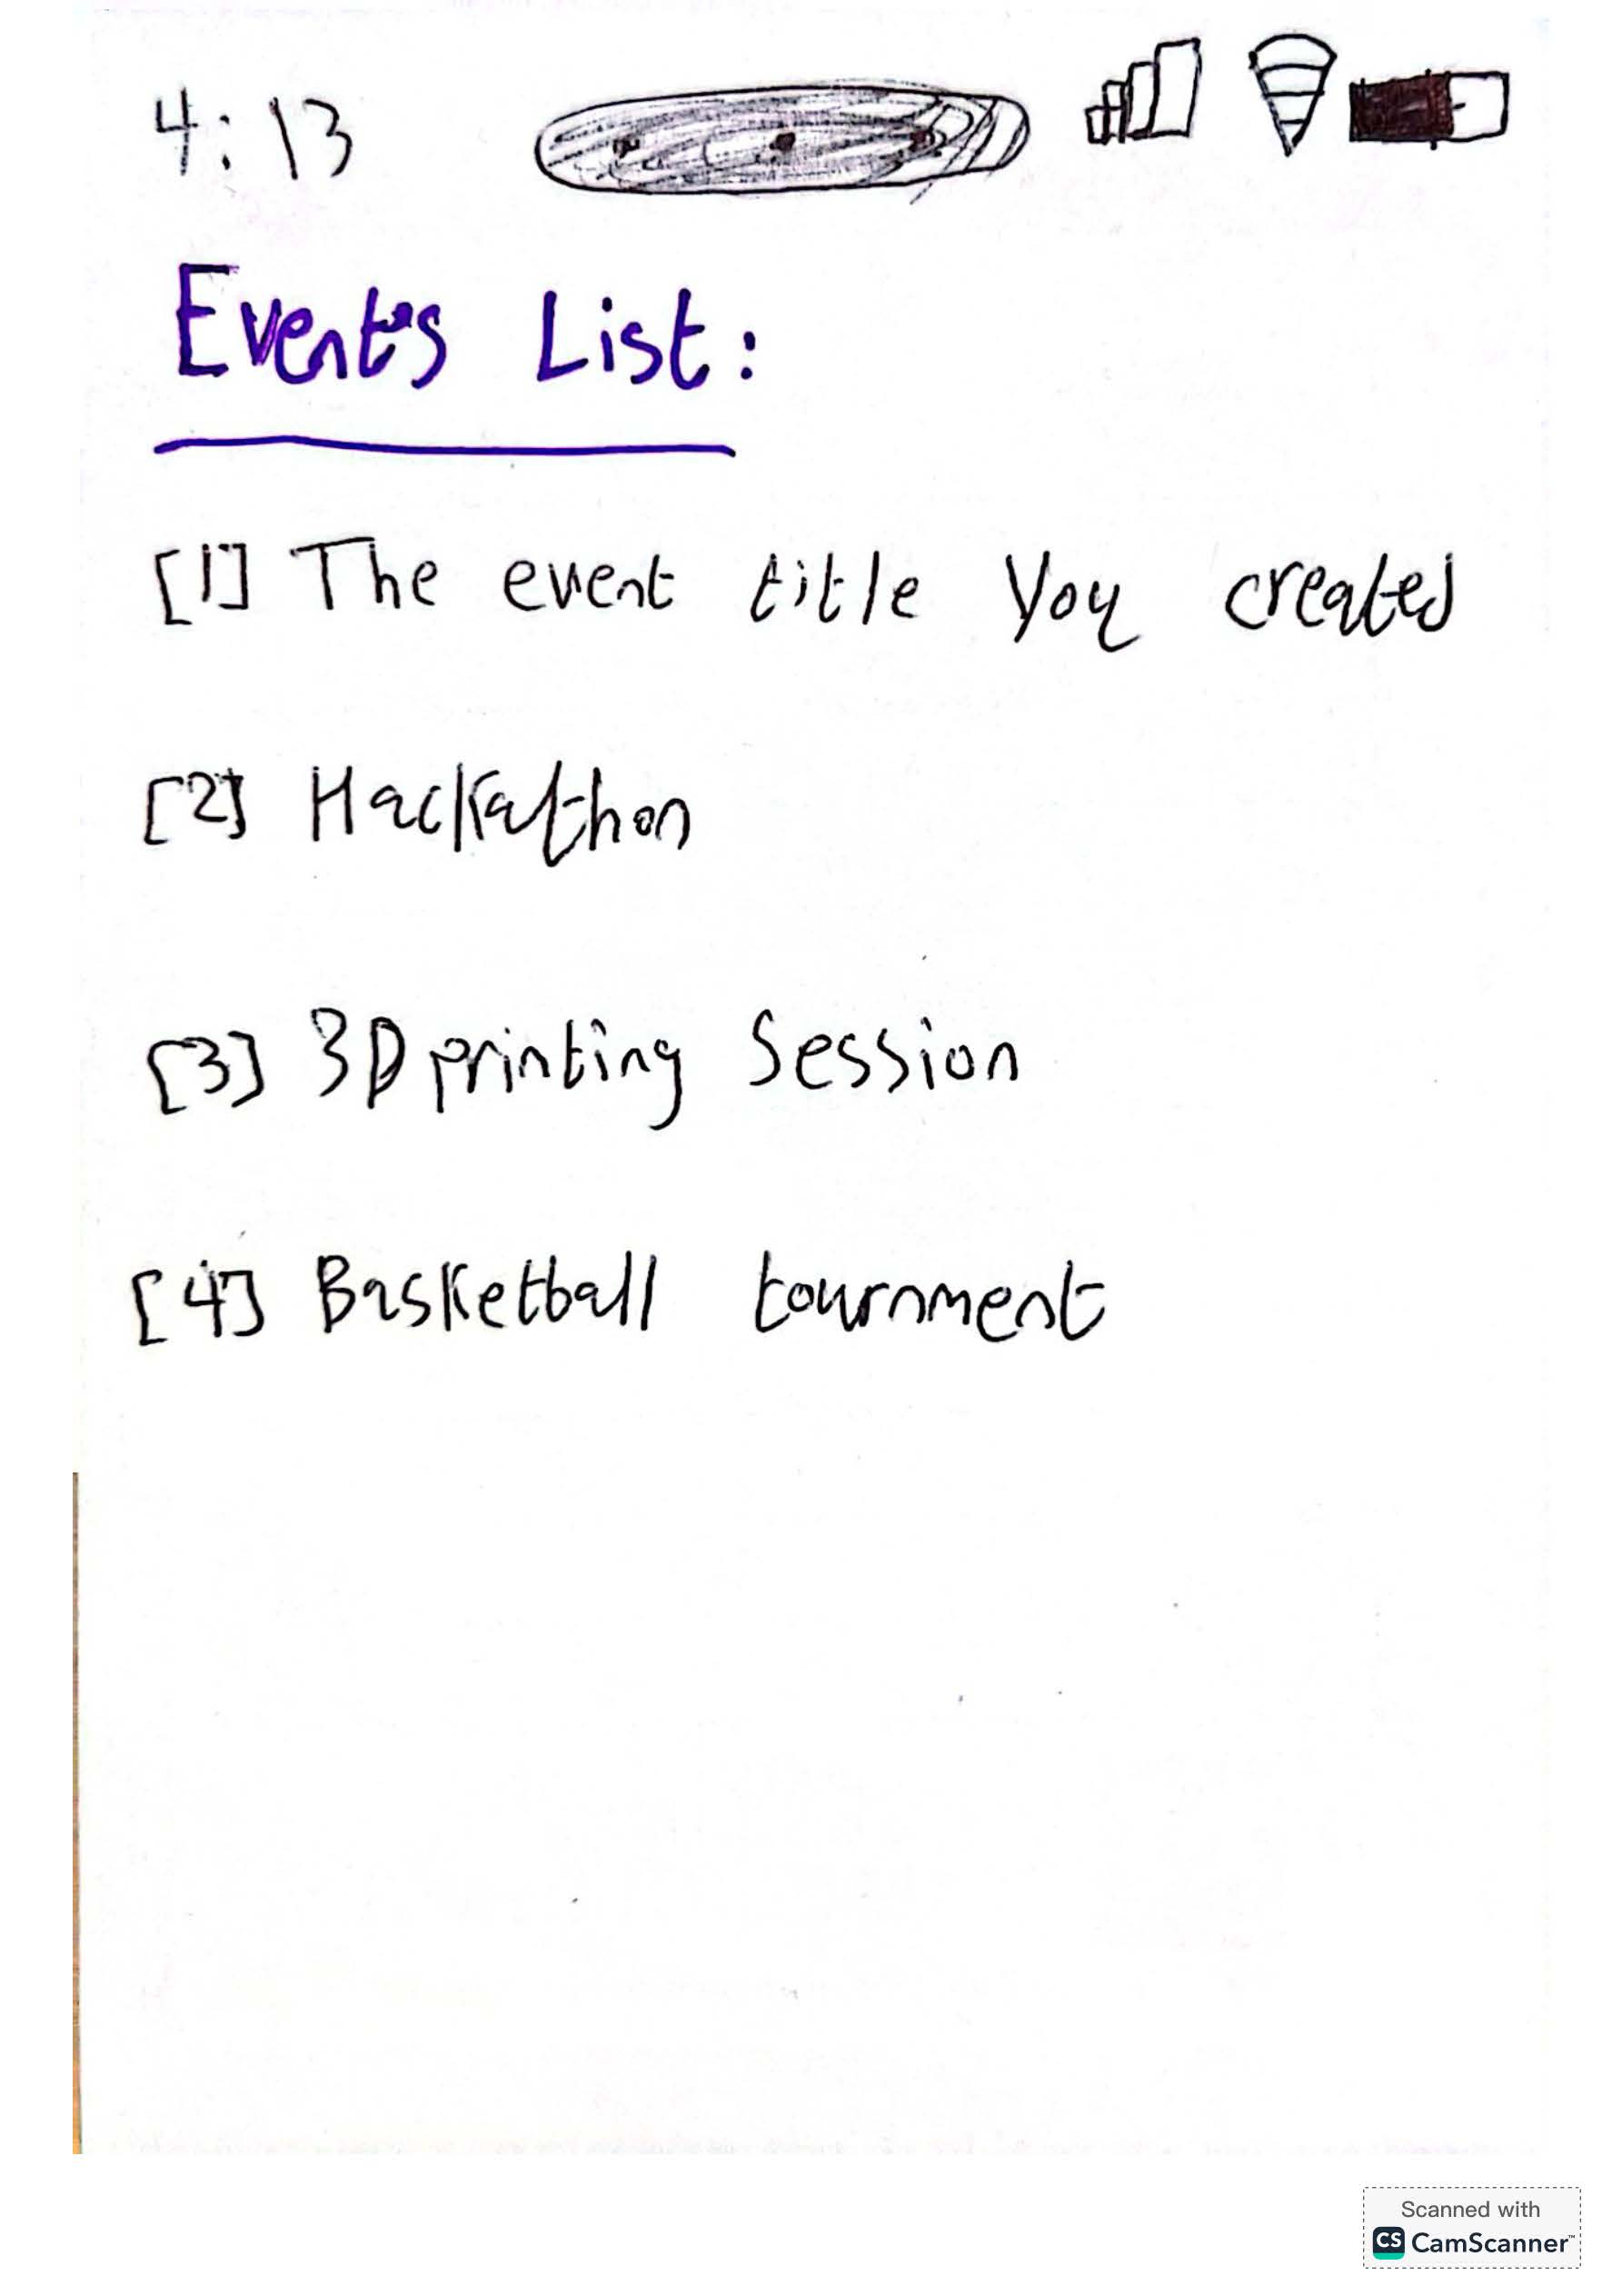 4:13
Events List:
[1] The event title you created
[2] Hackathon
[3] 3D printing Session
[4] Basketball tournment
Scanned with
CS CamScanner™